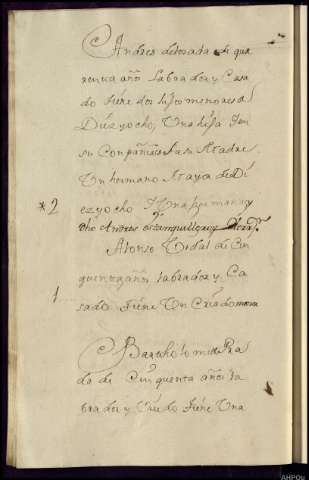 Andres de losada de qua
renta años labrador y Casa
do tiene dos hijos menores de
Diez y ocho, Una hija En
su Conpañia su Madre,
Un hermano Maior de Di
*2 ez y ocho Y Una hermana y
dho Andres
Alonso Vidal de Cin
quenta años labrador y Ca
1 sado tiene Un Criado menor
Bartholome de Pra
da de Cinquenta años la
brador y Viudo tiene Una
AHPOu